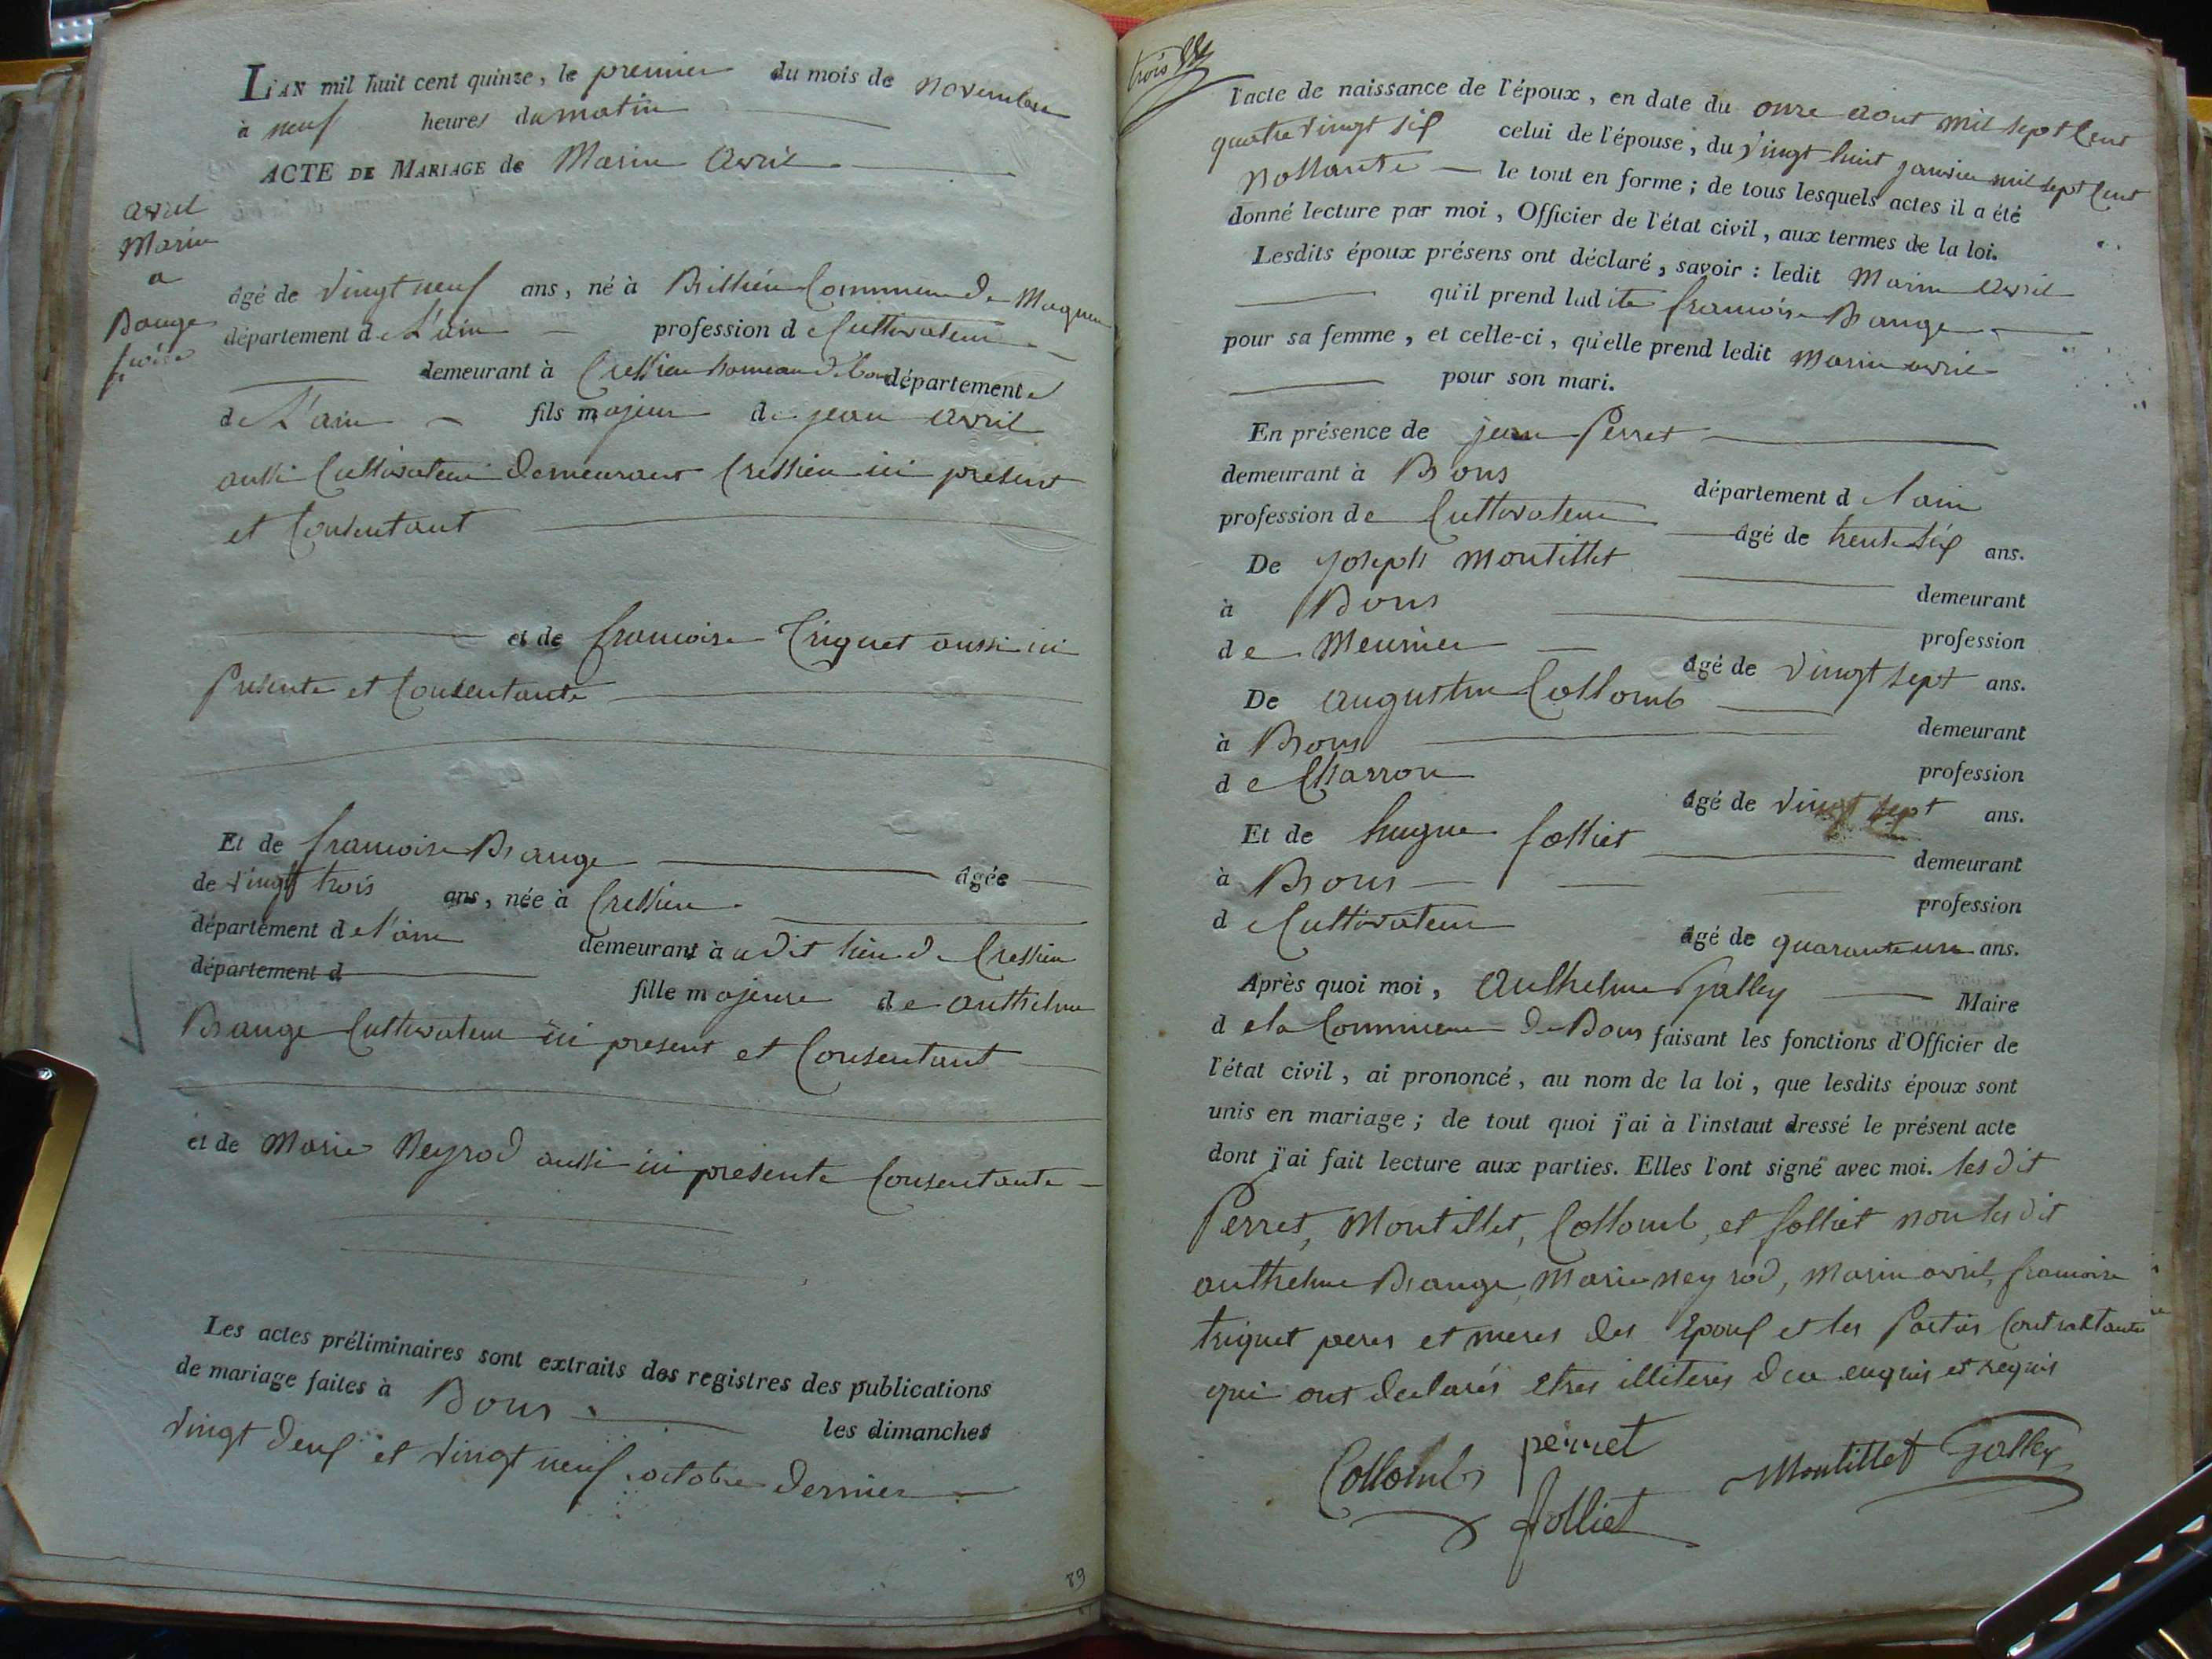 L'AN mil huit cent quinze, le premier du mois de novembre
à neuf heures du matin
ACTE DE MARIAGE de Marin Avril
avril
Marin
a
Bange
agé de vingt neuf ans, né à Brithieu Commune de Magnieu
département de L'ain profession de Cultivateur
demeurant à Cressieu hameau de bons département
de L'ain fils majeur de jean avril
aussi Cultivateur demeurant Cressieu ici présent
et Consentant
et de francoise Triquet aussi ici
Presente et Consentante
Et de francoise Bange agée
de vingt trois ans, née à Cressieu
département de l'ain demeurant à udit lieu de Cressieu
département d
fille majeure de anthelme
Bange Cultivateur ici present et Consentant
et de Marie Neyrod aussi ici presente Consentante
Les actes préliminaires sont extraits des registres des publications
de mariage faites à Bons les dimanches
vingt deux et vingt neuf octobre dernier
89
trois
l'acte de naissance de l'époux, en date du onze aout mil sept cent
quatre vingt six celui de l'épouse, du vingt huit janvier mil sept cent
nonante le tout en forme; de tous lesquels actes il a été
donné lecture par moi, Officier de l'état civil, aux termes de la loi.
Lesdits époux présens ont déclaré, savoir: ledit Marin avril
qu'il prend ladite francoise Bange
pour sa femme, et celle-ci, qu'elle prend ledit Marin avril
pour son mari.
En présence de jean Perret
demeurant à Bons département de l'ain
profession de Cultivateur agé de trente six ans.
De joseph Montillet demeurant
à Bons profession
de Meunier agé de vingt sept ans.
De augustin Collomb demeurant
à Bons profession
de Charron agé de vingt sept ans.
Et de hugue folliet demeurant
à Bons profession
de Cultivateur agé de quarante un ans.
Après quoi moi, Anthelme Galley Maire
de la Commune de Bons faisant les fonctions d'Officier de
l'état civil, ai prononcé, au nom de la loi, que lesdits époux sont
unis en mariage; de tout quoi j'ai à l'instaut dressé le présent acte
dont j'ai fait lecture aux parties. Elles l'ont signé avec moi. les dit
Perret, Montillet, Collomb, et folliet non les dit
anthelme Bange, Marie neyrod, Marin avril, francoise
triquet peres et meres des Epoux et les Parties Contractante
qui ont declarés etres illiteres de ce enquis et requis
Collomb perret Montillet Galley
folliet